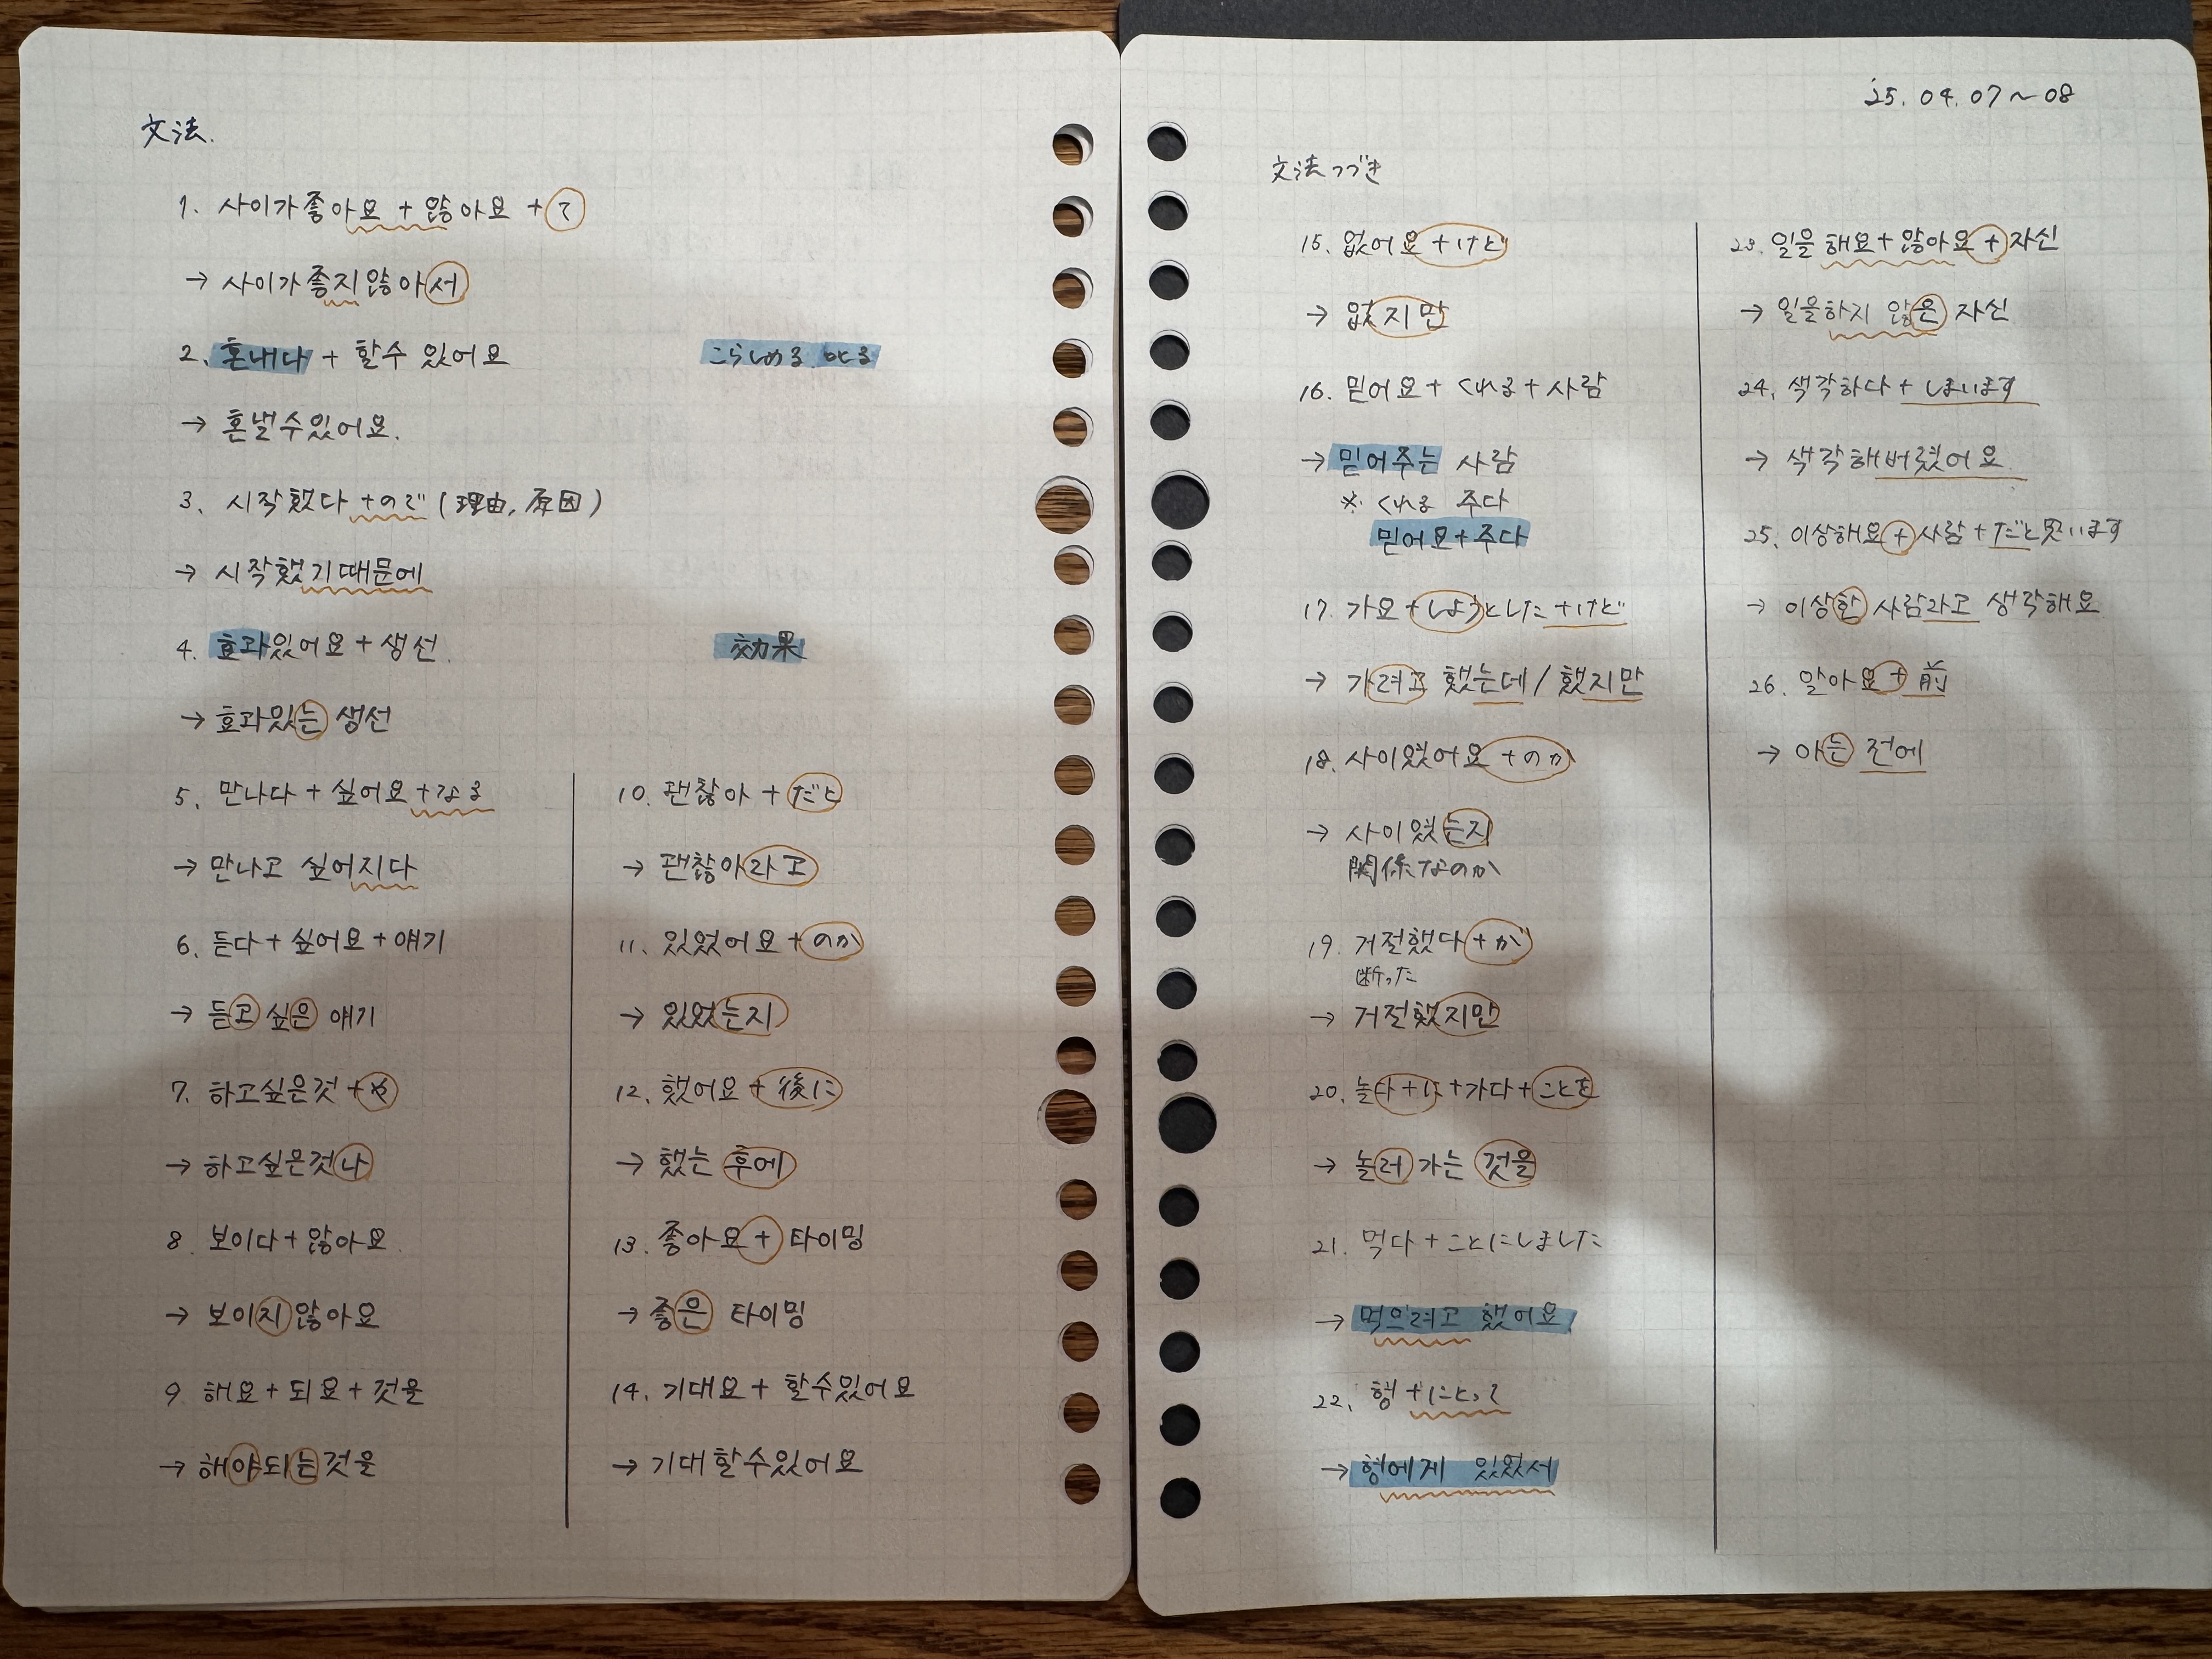 文法.
1. 사이가 좋아요 + 않아요 + て
→ 사이가 좋지 않아서
2. 혼내다 + 할수 있어요 こらしめる. 叱る
→ 혼낼수있어요.
3. 시작했다 +ので (理由, 原因)
→ 시작했기때문에
4. 효과있어요 + 생선. 効果
→ 효과있는 생선
5. 만나다 + 싶어요 +なる
→ 만나고 싶어지다
6. 듣다 + 싶어요 + 얘기
→ 듣고 싶은 얘기
7. 하고싶은것 + や
→ 하고싶은것나
8. 보이다 + 않아요
→ 보이지않아요
9. 해요 + 되요 + 것을
→ 해야되는것을
10. 괜찮아 + だと
→ 괜찮아라고
11. 있었어요 + のか
→ 있었는지
12. 했어요 + 後に
→ 했는 후에
13. 좋아요 + 타이밍
→ 좋은 타이밍
14. 기대요 + 할수있어요
→ 기대할수있어요
25. 04. 07〜08
文法つづき
15. 없어요 +けど
→ 없지만
16. 믿어요 + くれる + 사람
→ 믿어주는 사람
※ くれる 주다
믿어요+주다
17. 가요 +しようとした +けど
→ 가려고 했는데 / 했지만
18. 사이였어요 +のか
→ 사이였는지
関係なのか
19. 거절했다 + が
断った
→ 거절했지만
20. 놀다+に+가다+ことを
→ 놀러 가는 것을
21. 먹다 + ことにしました
→ 먹으려고 했어요
22. 형 +にとって
→ 형에게 있었서
23. 일을 해요 + 않아요 + 자신
→ 일을하지 않은 자신
24. 색각하다 + しまいます
→ 색각해버렸어요.
25. 이상해요 + 사람 + だと思います
→ 이상한 사람라고 생각해요
26. 알아요 + 前
→ 아는 전에